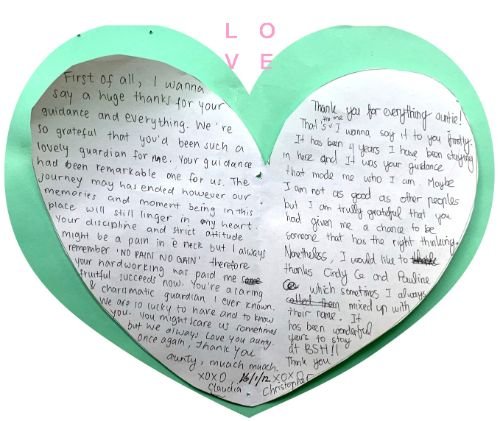 L O
V E
First of all, I wanna
say a huge thanks for your
guidance and everything. We're
so grateful that you'd been such a
lovely guardian for me. Your guidance
had been remarkable one for us. The
journey may has ended however our
memories and moment being in this
place will still linger in my heart.
Your discipline and strict attitude
might be a pain in e neck but I always
remember 'NO PAIN NO GAIN' therefore
your hardworking has paid me
fruitful succeeds now. You're a caring
& charismatic guardian I ever known.
We are so lucky to have and to know
you. You might scare us sometimes
but we always love you aunty.
once again, Thank you
aunty, muach muach.
XOXO
Claudia
16/1/12
Thank you for everything auntie!
That's the one I wanna say it to you firstly.
It has been 4 years I have been staying
in here and It was your guidance
that made me who I am. Maybe
I am not as good as other peoples
but I am trully grateful that you
had given me a chance to be
someone that has the right thinking.
Nonetheless, I would like to
thanks Cindy Ce and Pauline
Ce which sometimes I always
called them mixed up with
their name. It
has been wonderful
years to stay
at BSH!!
Thank you
XOXO
Christopher